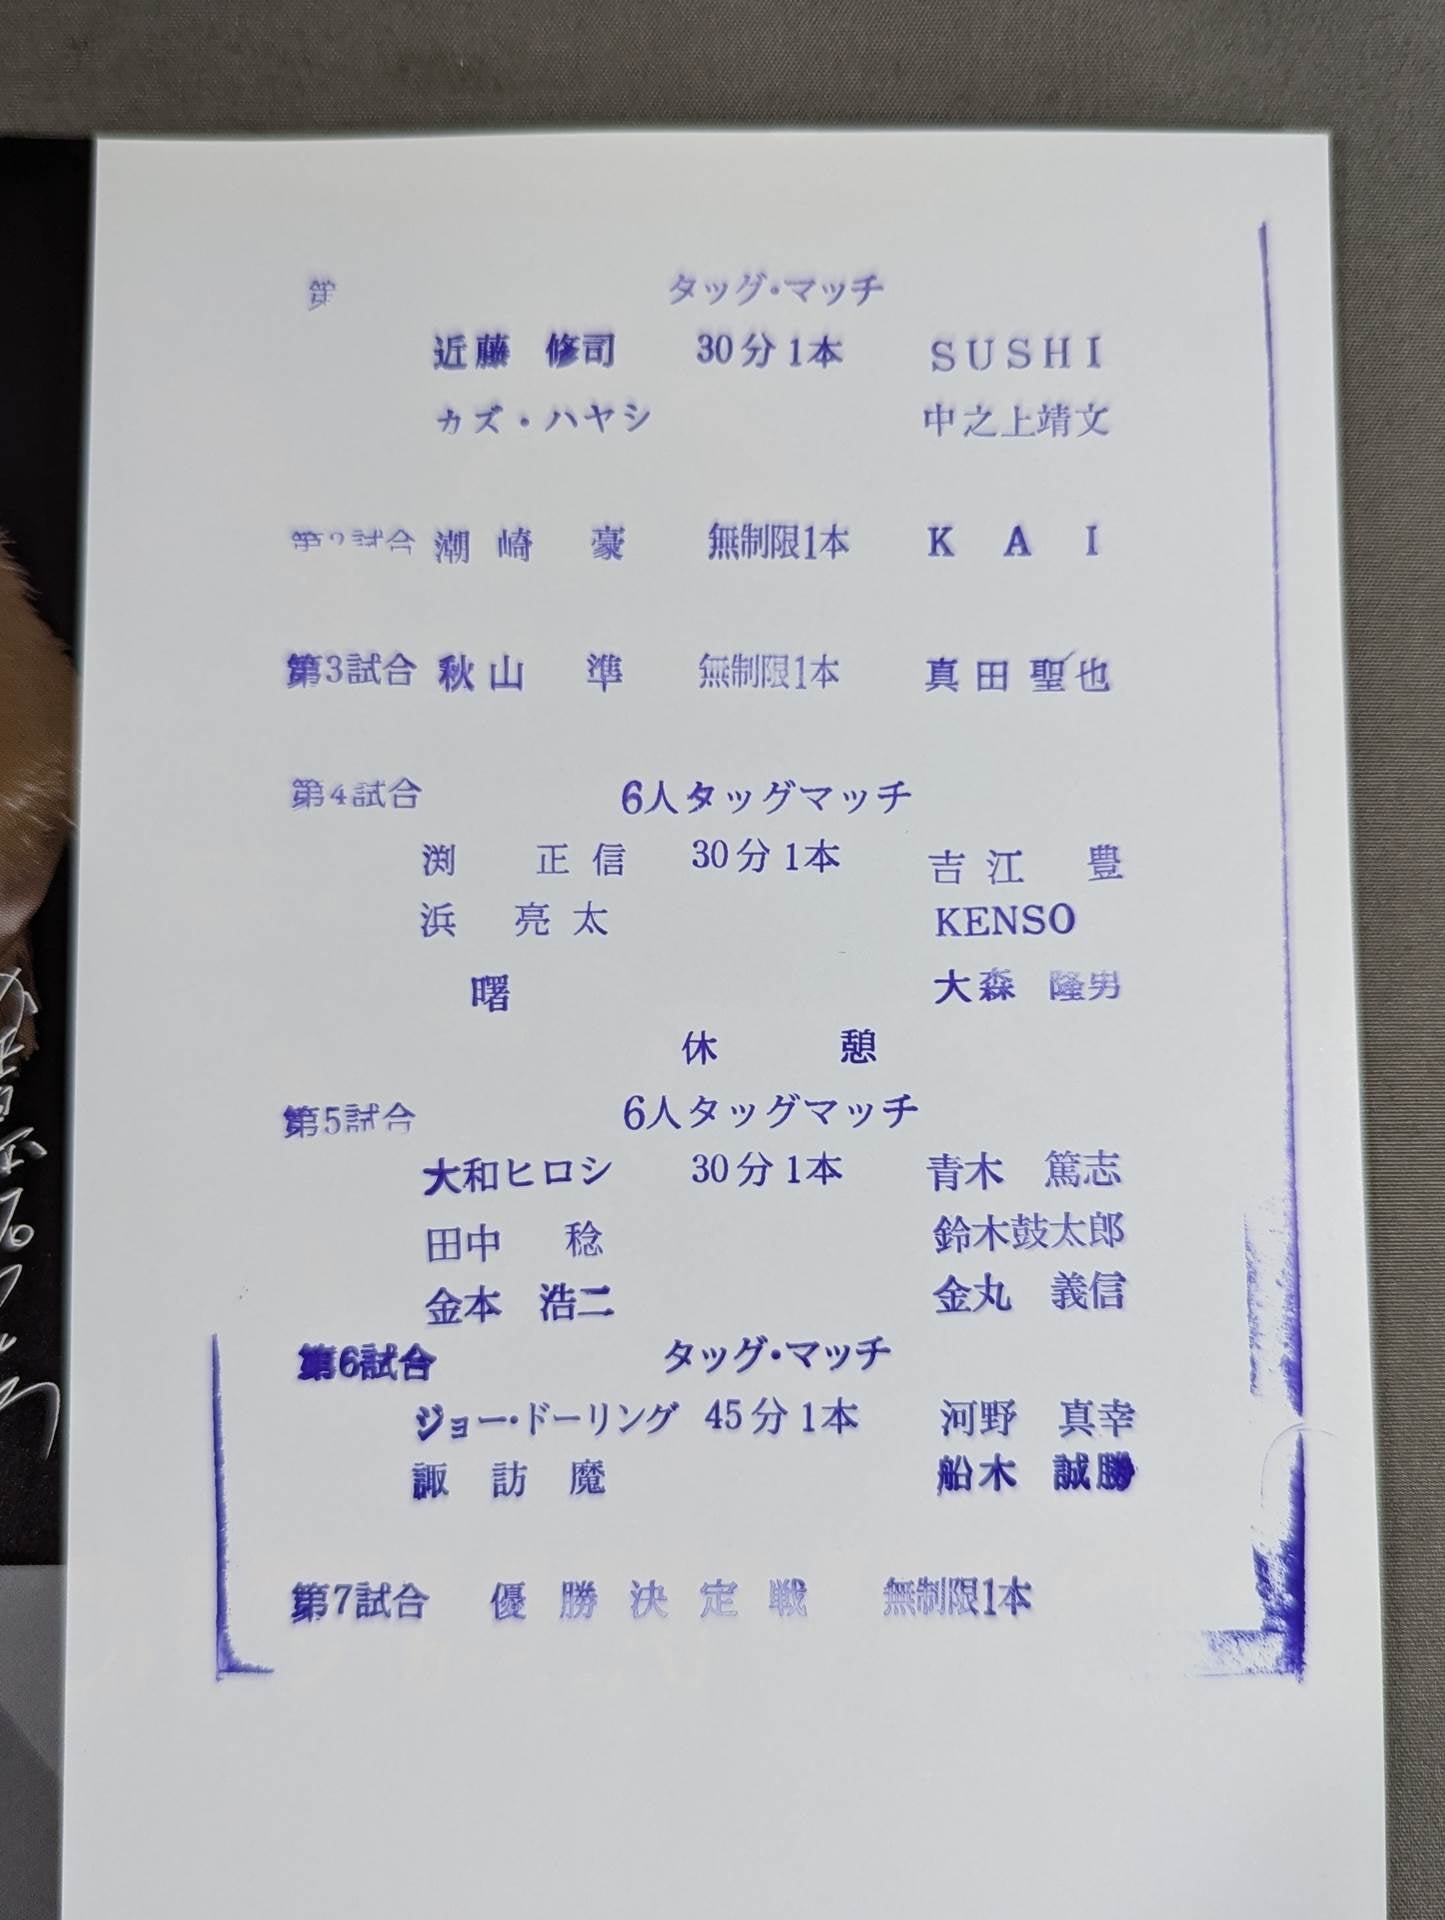 第 タッグ・マッチ
近藤 修司 30分1本 SUSHI
カズ・ハヤシ 中之上靖文
第2試合 潮崎 豪 無制限1本 KAI
第3試合 秋山 準 無制限1本 真田聖也
第4試合 6人タッグマッチ
渕 正信 30分1本 吉江 豊
浜 亮太 KENSO
曙 大森 隆男
休 憩
第5試合 6人タッグマッチ
大和ヒロシ 30分1本 青木 篤志
田中 稔 鈴木鼓太郎
金本 浩二 金丸 義信
第6試合 タッグ・マッチ
ジョー・ドーリング 45分1本 河野 真幸
諏訪魔 船木 誠勝
第7試合 優勝決定戦 無制限1本